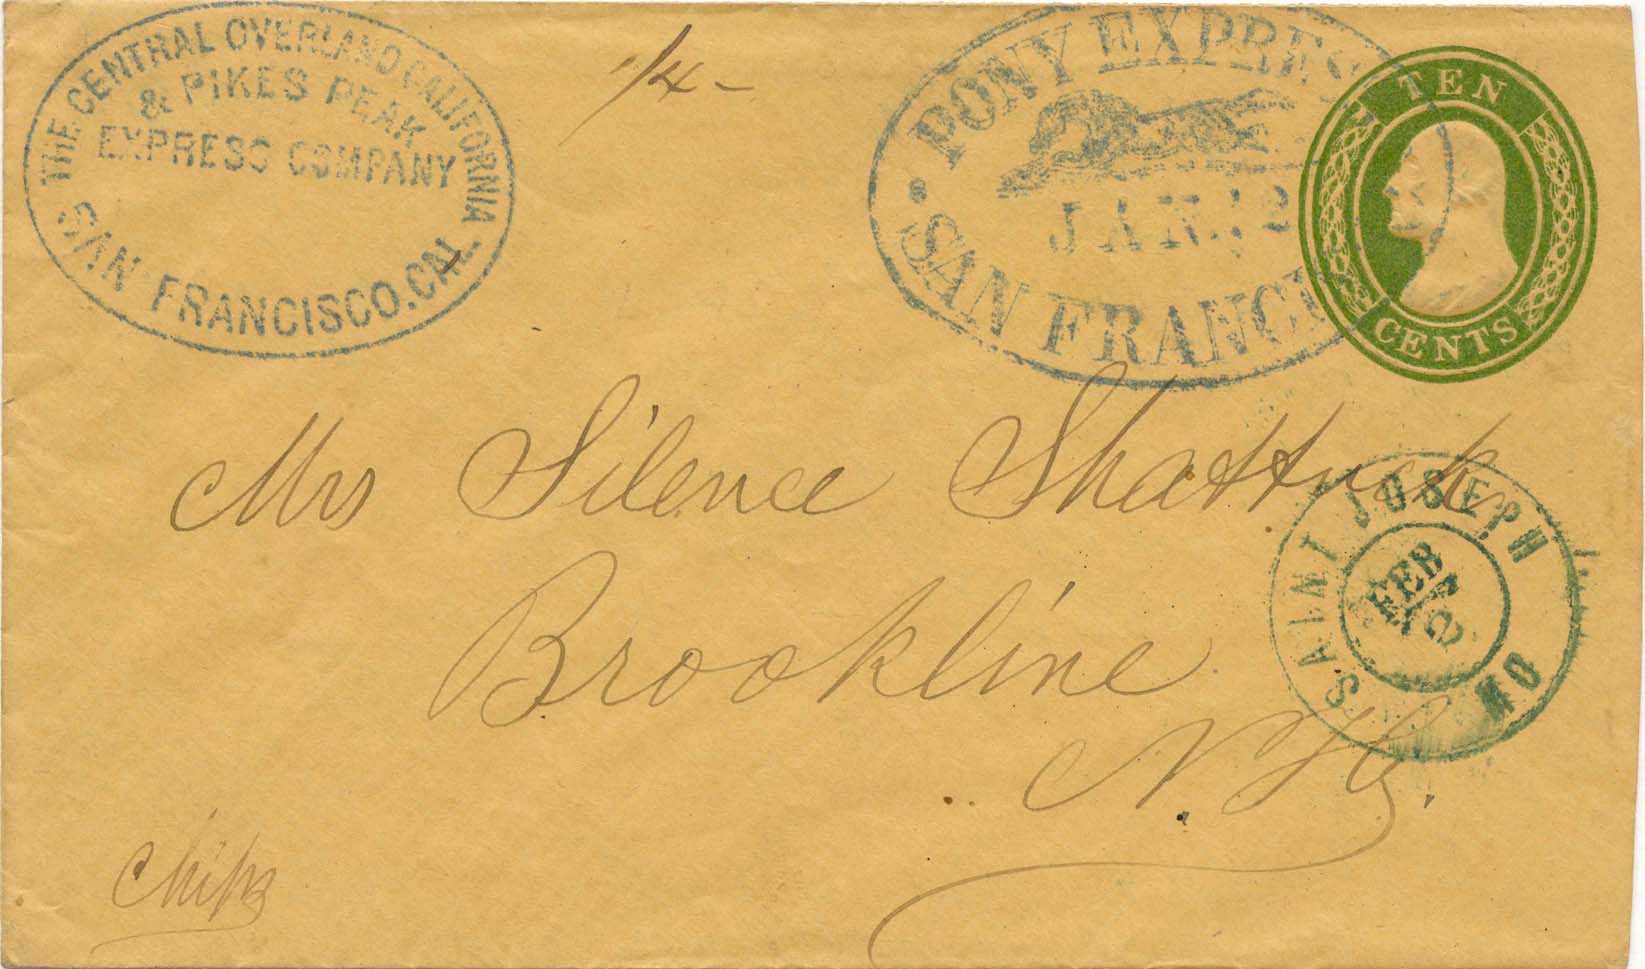 THE CENTRAL OVERLAND CALIFORNIA
& PIKES PEAK
EXPRESS COMPANY
SAN FRANCISCO. CAL
1/4 -
PONY EXPRESS
JAN. 12
SAN FRANCI
TEN
CENTS
Mrs Silence Shattuck
Brookline
N. H.
SAINT JOSEPH
FEB
MO